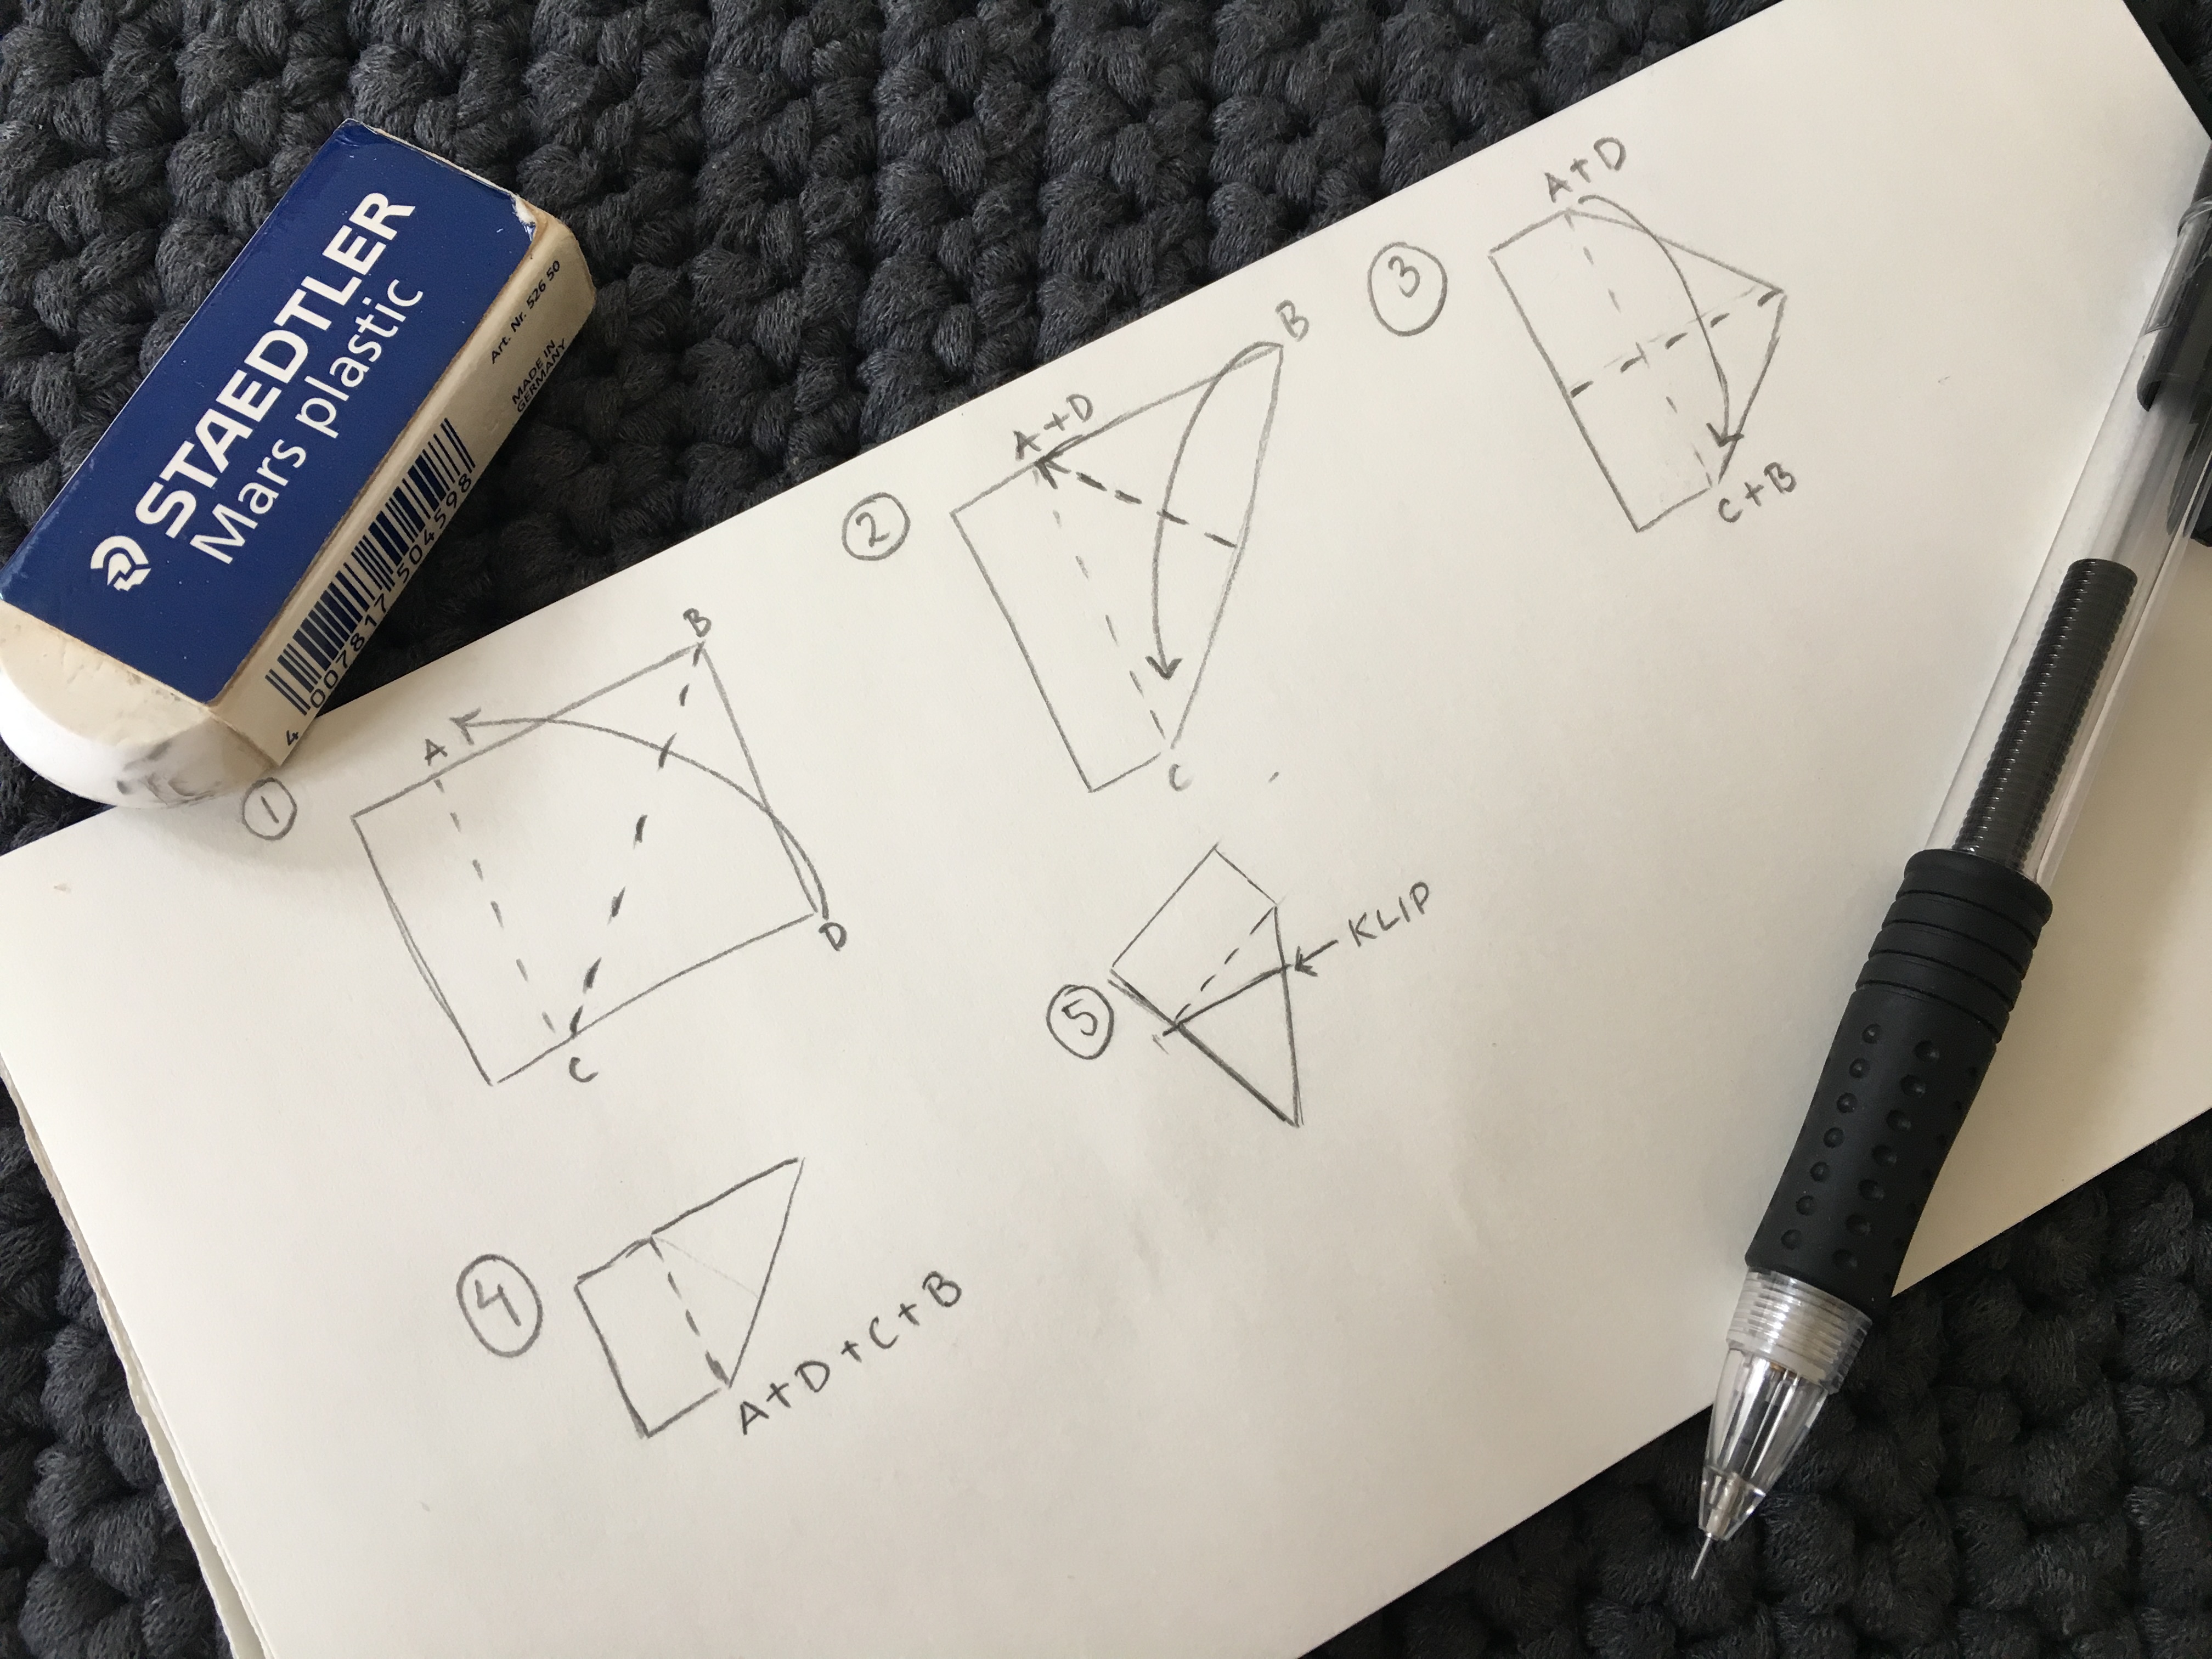 STAEDTLER
Mars plastic
Art. Nr. 526 50
MADE IN
GERMANY
4 007817 504598
1
A
B
C
D
2
A+D
B
C
3
A+D
C+B
4
A+D+C+B
5
KLIP